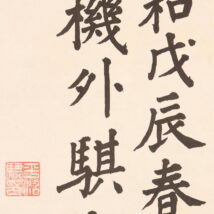 和戊辰春
機外騏